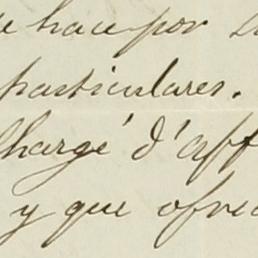 se hace por
particulares.
Chargé d'aff
y que ofrec